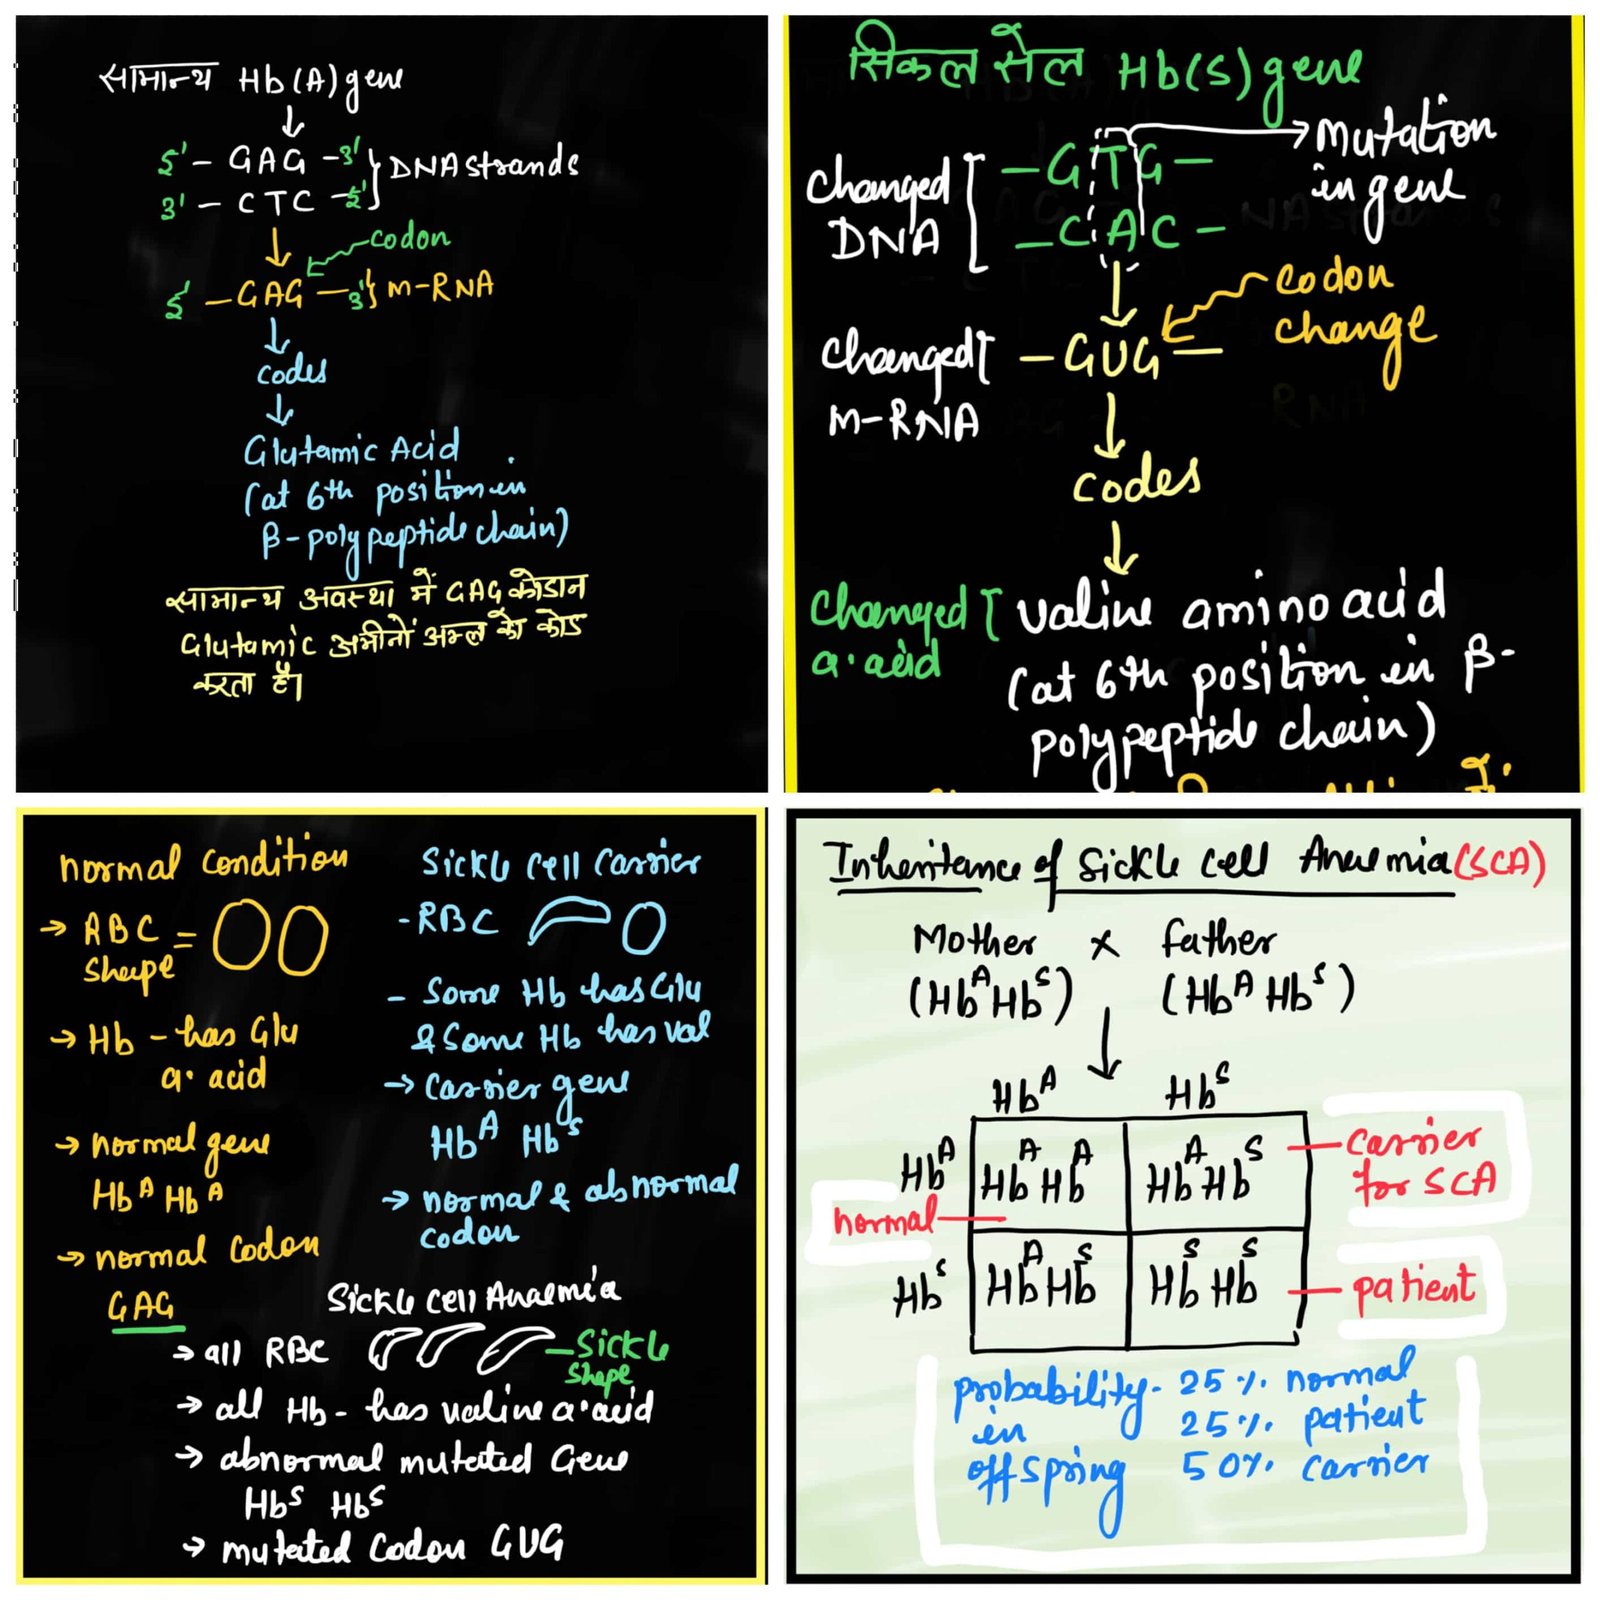 सामान्य Hb(A) gene
5' - GAG - 3'
3' - CTC - 5'
DNA strands
codon
5' - GAG - 3' } m-RNA
codes
Glutamic Acid
(at 6th position in
β-polypeptide chain)
सामान्य अवस्था में GAG कोडान
Glutamic अमीनों अम्ल को कोड
करता है।
सिकल सेल Hb(S) gene
Changed
DNA
-GTG-
-CAC-
Mutation
in gene
Changed
m-RNA
-GUG-
codon
change
codes
Changed
a.acid
valine amino acid
(at 6th position in β-
polypeptide chain)
normal condition
→ RBC =
Shape
→ Hb - has Glu
a. acid
→ normal gene
Hbᴬ Hbᴬ
→ normal codon
GAG
Sickle cell Carrier
- RBC
- Some Hb has Glu
& Some Hb has val
→ Carrier gene
Hbᴬ Hbˢ
→ normal & abnormal
codon
Sickle cell Anaemia
→ all RBC
Sickle
Shape
→ all Hb - has valine a.acid
→ abnormal mutated Gene
Hbˢ Hbˢ
→ mutated Codon GUG
Inheritance of Sickle cell Anaemia (SCA)
Mother × father
(HbᴬHbˢ) (HbᴬHbˢ)
Hbᴬ Hbˢ
Hbᴬ HbᴬHbᴬ HbᴬHbˢ
Carrier
for SCA
normal
Hbˢ HbᴬHbˢ HbˢHbˢ
patient
probability - 25% normal
in 25% patient
offspring 50% carrier